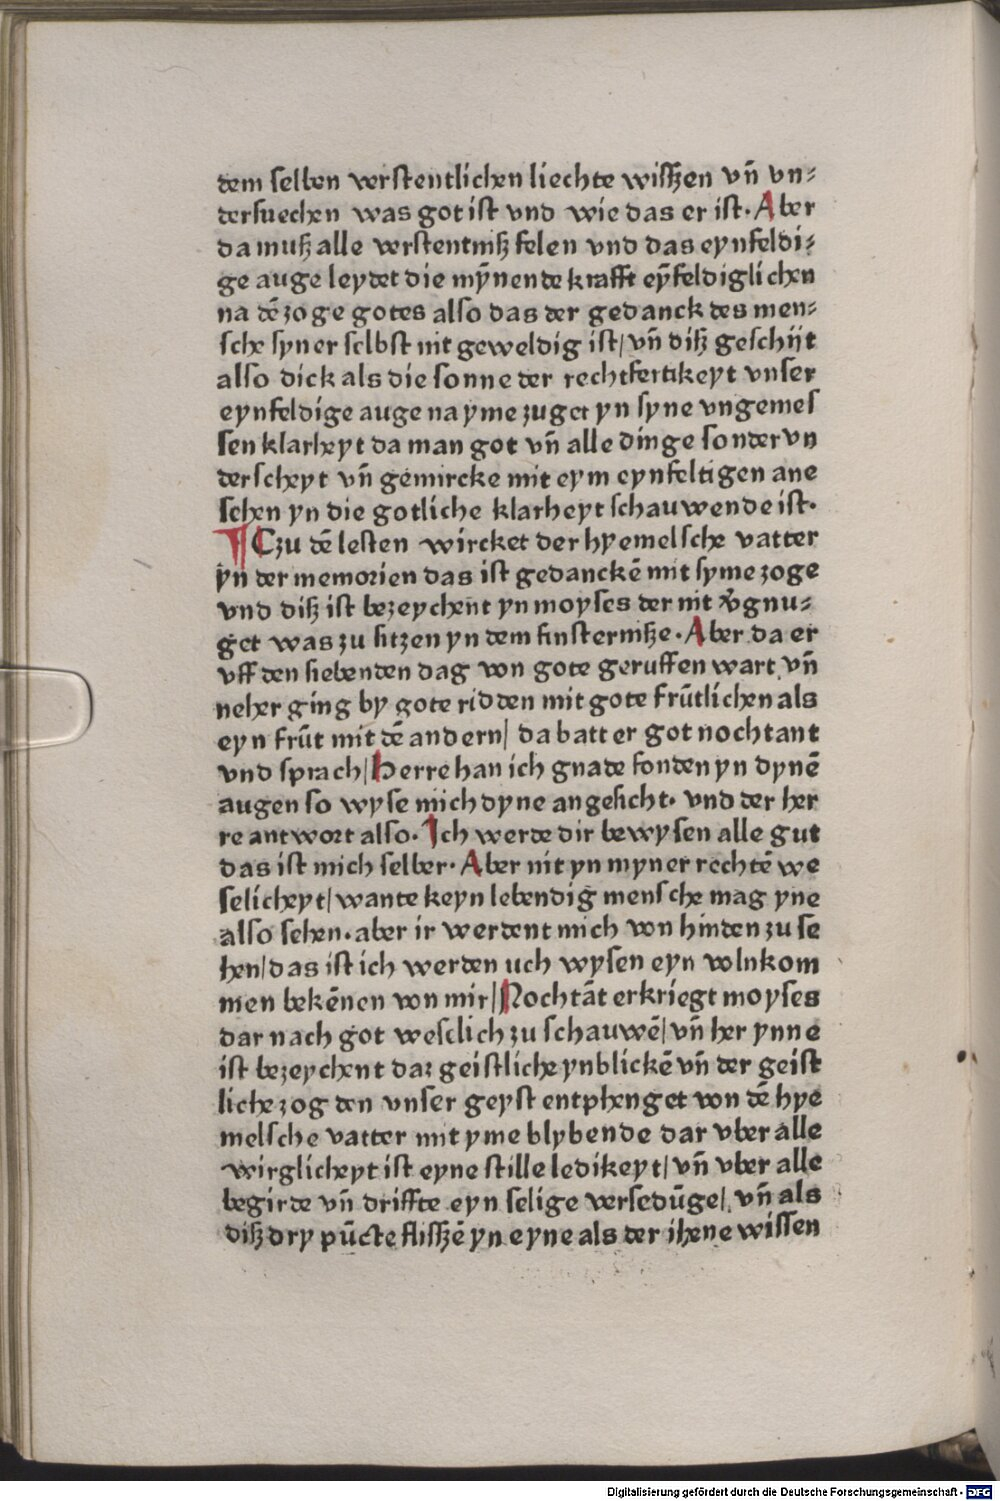 dem selben verstentlichen liechte wißzen vn̄ vn⸗
dersuechen was got ist vnd wie das er ist. Aber
da muß alle verstentniß felen vnd das eynfeldi⸗
ge auge leydet die mȳnende krafft eȳfeldiglichen
na dē zoge gotes also das der gedanck des men⸗
sche syner selbst nit geweldig ist/ vn̄ diß geschijt
also dick als die sonne der rechtfertikeyt vnser
eynfeldige auge na yme zuget yn syne vngemes
sen klarheyt da man got vn̄ alle dinge sonder vn
derscheyt vn̄ gemircke mit eym eynfeltigen ane
sehen yn die gotliche klarheyt schauwende ist.
¶ Czu dē lesten wircket der hyemelsche vatter
yn der memorien das ist gedanckē mit syme zoge
vnd diß ist bezeychent yn moyses der nit v̄gnu⸗
get was zu sitzen yn dem finsterniße. Aber da er
vff den siebenden dag von gote geruffen wart vn̄
neher ging by gote ridden mit gote frūtlichen als
eyn frūt mit dē andern/ da batt er got nochtant
vnd sprach/ Herre han ich gnade fonden yn dynē
augen so wyse mich dyne angesicht. vnd der her
re antwort also. Ich werde dir bewysen alle gut
das ist mich selber. Aber nit yn myner rechtē we
selicheyt/ wante keyn lebendig mensche mag yne
also sehen. aber ir werdent mich von hinden zu se
hen/ das ist ich werden uch wysen eyn volnkom
men bekēnen von mir/ Nochtāt erkriegt moyses
dar nach got weselich zu schauwē/ vn̄ her ynne
ist bezeychent daz geistliche ynblickē vn̄ der geist
liche zog den vnser geyst entphenget von dē hye
melsche vatter mit yme blybende dar vber alle
wirglicheyt ist eyne stille ledikeyt/ vn̄ vber alle
begirde vn̄ driffte eyn selige versedūge/ vn̄ als
diß dry pūcte flißzē yn eyne als der ihene wissen
Digitalisierung gefördert durch die Deutsche Forschungsgemeinschaft - DFG